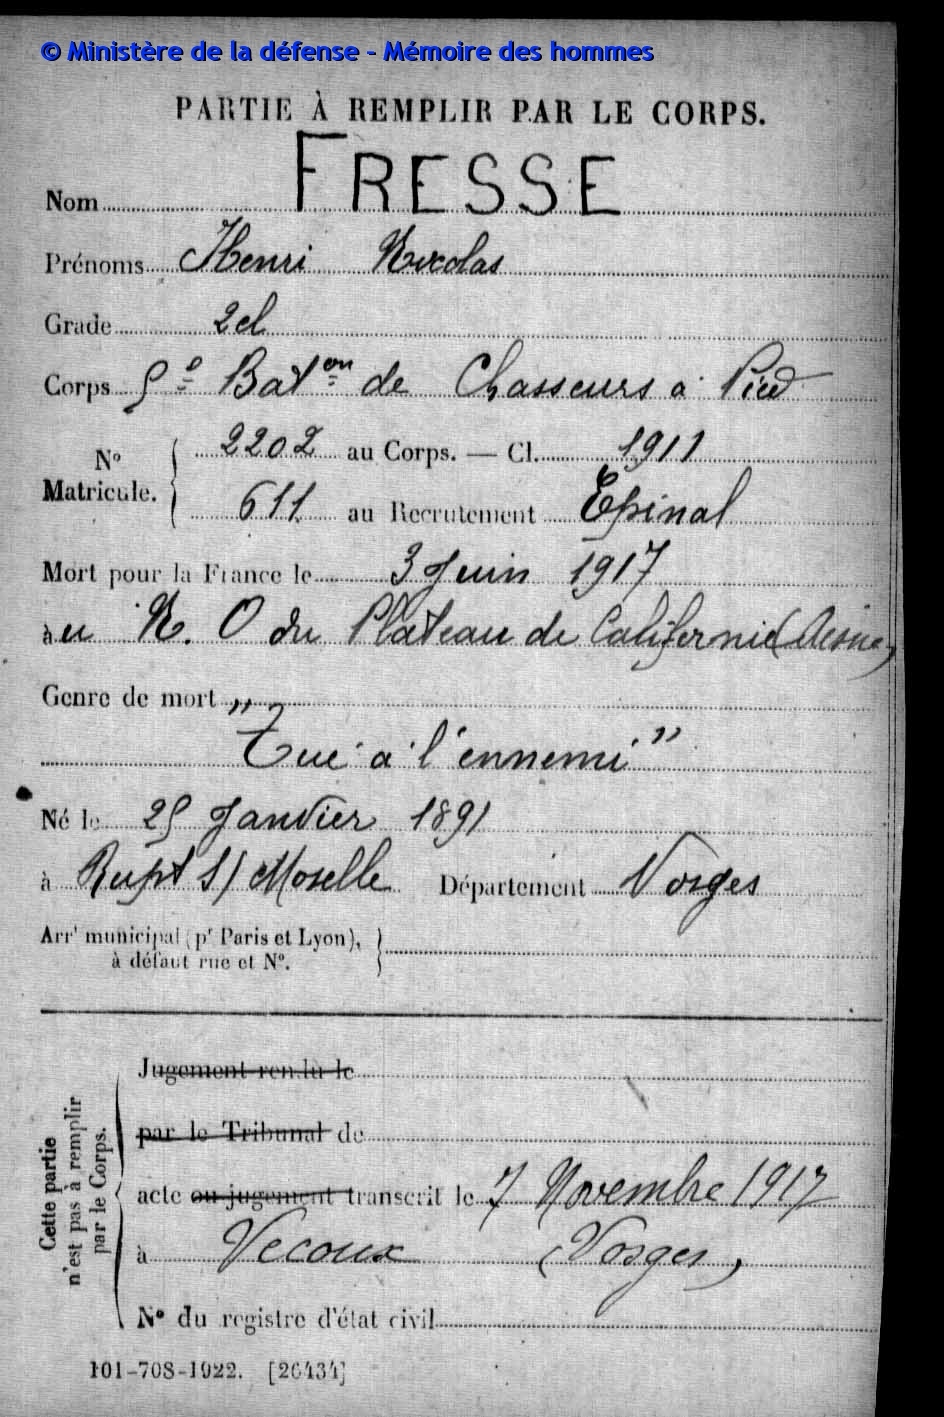 © Ministère de la défense - Mémoire des hommes
PARTIE À REMPLIR PAR LE CORPS.
Nom FRESSE
Prénoms Henri Nicolas
Grade 2 cl
Corps 5e Baton de Chasseurs à Pied
No Matricule. { 2202 au Corps. — Cl. 1911
611 au Recrutement Epinal
Mort pour la France le 3 Juin 1917
au N. O du Plateau de Californie (Aisne)
Genre de mort "
Tué à l'ennemi"
Né le 25 Janvier 1891
à Rupt s/ Moselle Département Vosges
Arrt municipal (pr Paris et Lyon), }
à défaut rue et No.
Cette partie
n'est pas à remplir
par le Corps.
Jugement rendu le
par le Tribunal de
acte ou jugement transcrit le 7 Novembre 1917
à Vecoux (Vosges)
No du registre d'état civil
101-708-1922. [26434]